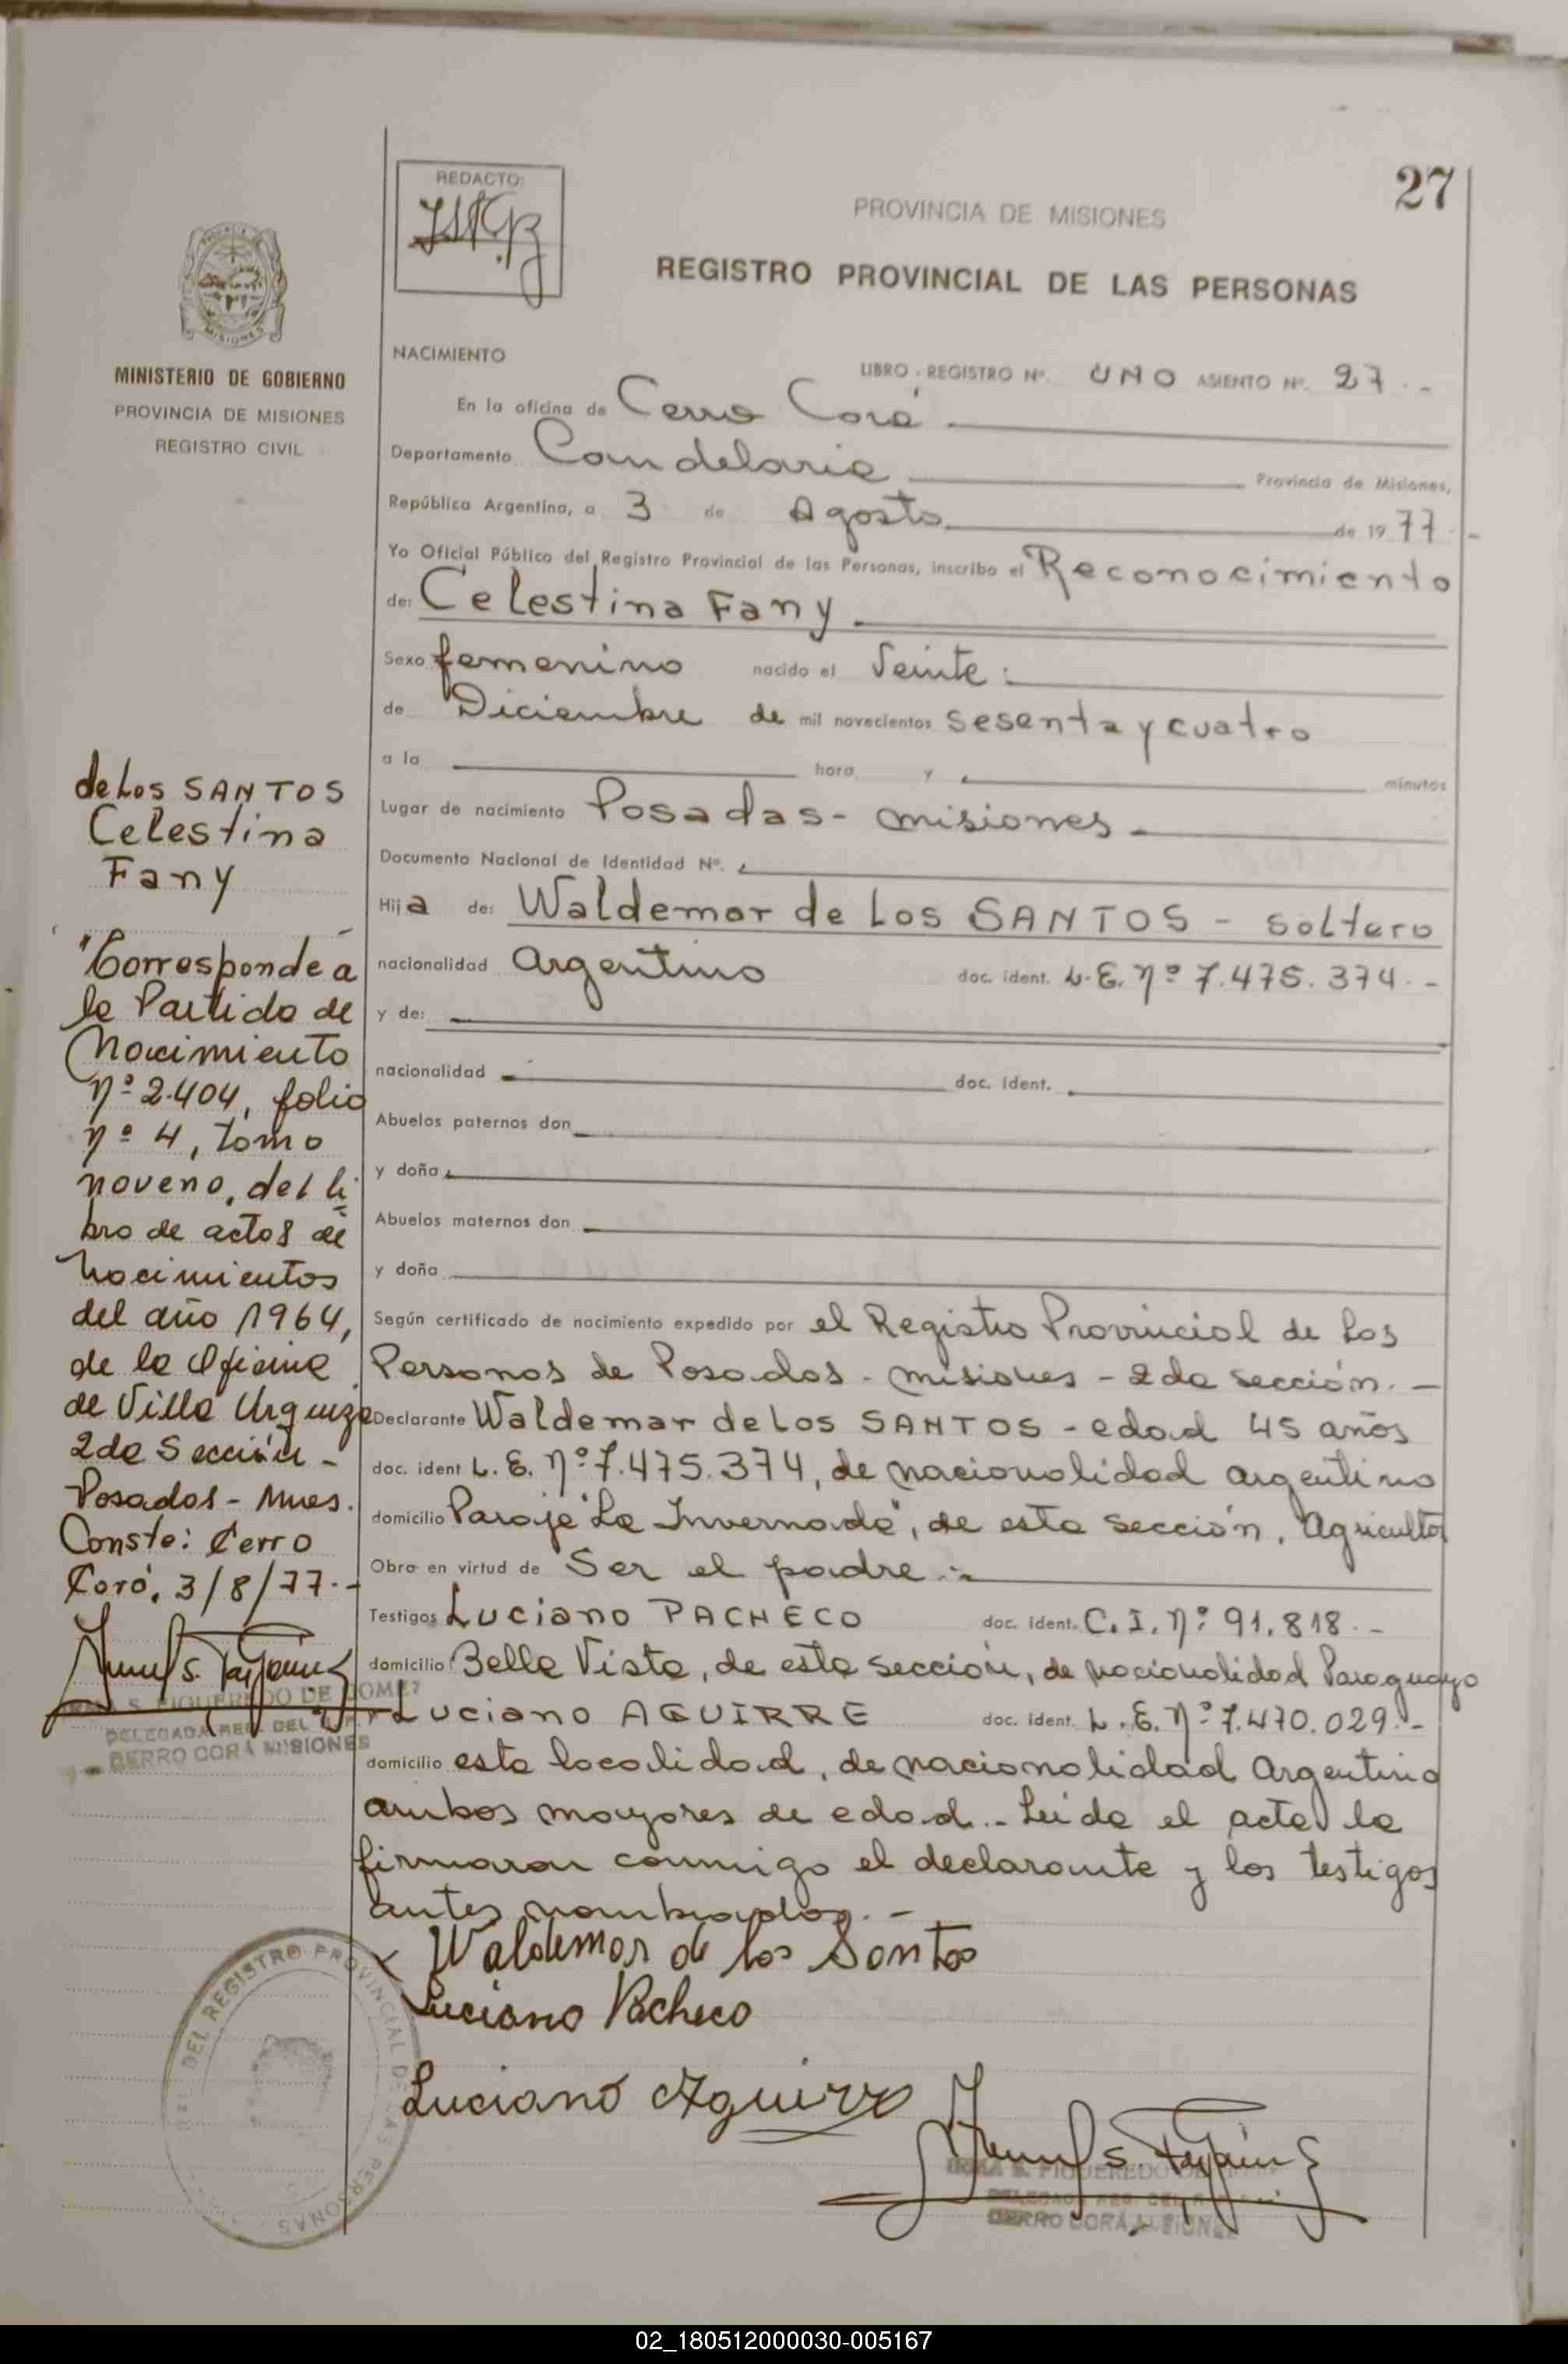 27
REDACTO:
PROVINCIA DE MISIONES
REGISTRO PROVINCIAL DE LAS PERSONAS
MISIONES
MINISTERIO DE GOBIERNO
PROVINCIA DE MISIONES
REGISTRO CIVIL
NACIMIENTO
LIBRO - REGISTRO Nº. UNO ASIENTO Nº. 27.-
En la oficina de Cerro Corá
Departamento Candelaria Provincia de Misiones,
República Argentina, a 3 de Agosto de 1977.-
Yo Oficial Público del Registro Provincial de las Personas, inscribo el Reconocimiento
de: Celestina Fany
Sexo femenino nacido el Veinte
de Diciembre de mil novecientos sesenta y cuatro
a la hora y minutos
Lugar de nacimiento Posadas - misiones
Documento Nacional de Identidad Nº.
Hija de: Waldemar de Los SANTOS - soltero
nacionalidad argentino doc. ident. L.E. nº 7.475.374.-
y de:
nacionalidad doc. ident.
Abuelos paternos don
y doña
Abuelos maternos don
y doña
Según certificado de nacimiento expedido por el Registro Provincial de Los
Personas de Posadas - misiones - 2da sección.-
Declarante Waldemar de Los SANTOS - edad 45 años
doc. ident L.E. nº 7.475.374, de nacionalidad argentino
domicilio Paraje "La Invernada", de esta sección. Agricultor
Obra en virtud de Ser el padre.-
Testigos Luciano PACHECO doc. ident. C.I. nº 91.818.-
domicilio Bella Vista, de esta sección, de nacionalidad Paraguayo
Luciano AGUIRRE doc. ident. L.E. nº 7.470.029.-
domicilio esta localidad, de nacionalidad Argentina
ambos mayores de edad.- Leida el acta la
firmaron conmigo el declarante y los testigos
antes nombrados.-
Waldemar de los Santos
Luciano Pacheco
Luciano Aguirre
de Los SANTOS
Celestina
Fany
"Corresponde a
la Partida de
Nacimiento
nº 2.404, folio
nº 4, tomo
noveno, del li
bro de actas de
nacimientos
del año 1964,
de la Oficina
de Villa Urquiza
2da Sección -
Posadas - Mnes.
Conste: Cerro
Corá, 3/8/77.-
S. FIGUEREDO DE GOMEZ
DELEGADA REG. DEL
CERRO CORA MISIONES
DEL REGISTRO PROVINCIAL DE LAS PERSONAS
S. FIGUEREDO DE
DELEGADA REG. DEL
CERRO CORA MISIONES
02_180512000030-005167